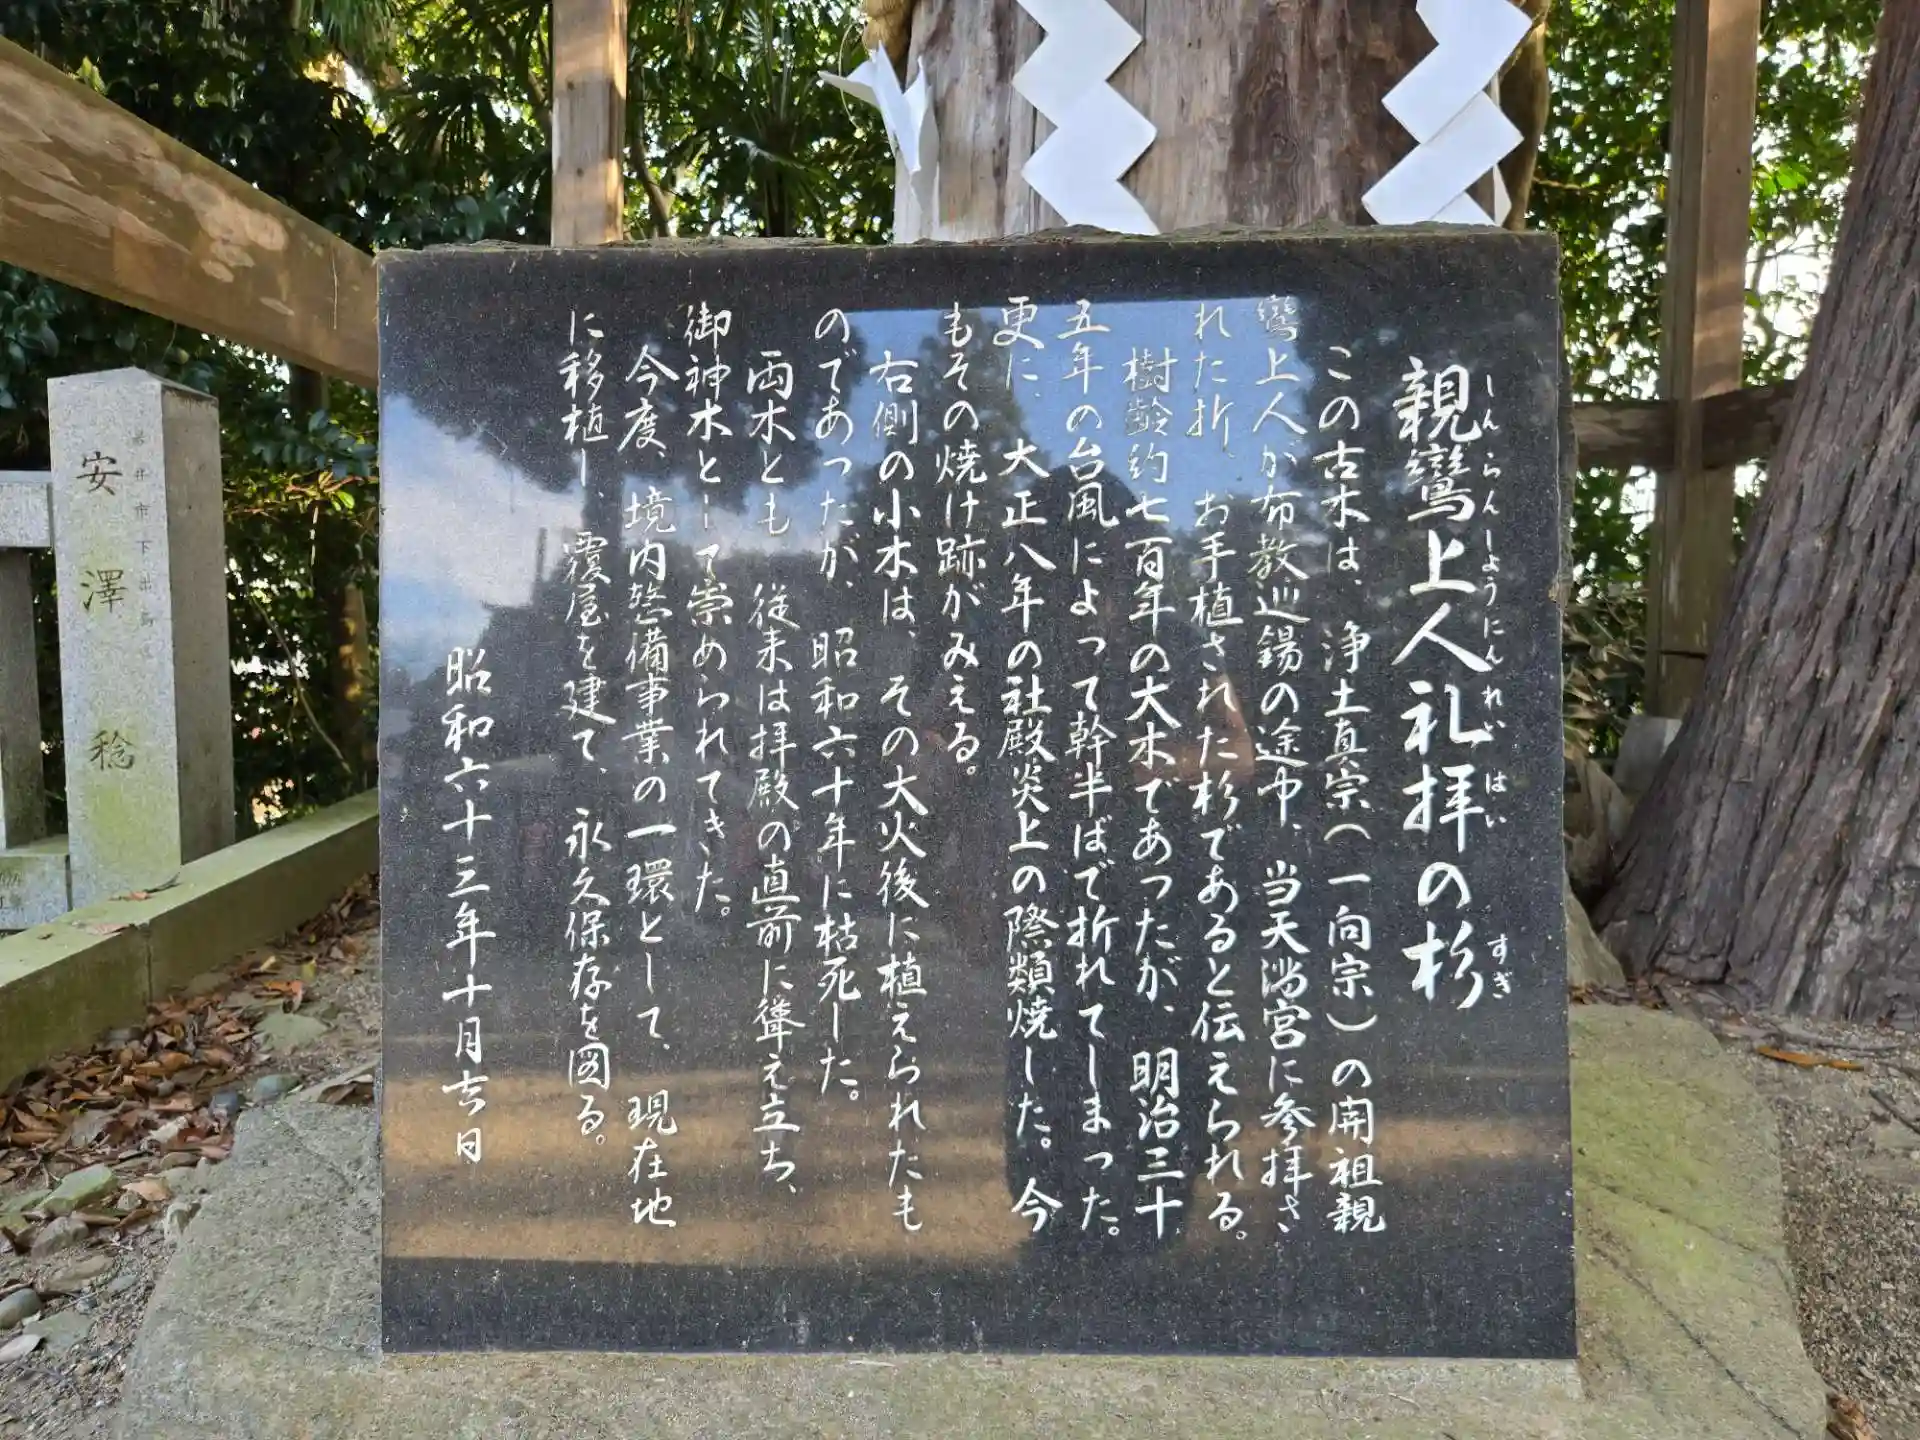 親鸞上人礼拝の杉
しんらんしようにんれいはい すぎ
この古木は、浄土真宗(一向宗)の開祖親
鸞上人が布教巡錫の途中、当天満宮に参拝さ
れた折、お手植された杉であると伝えられる。
樹齢約七百年の大木であったが、明治三十
五年の台風によって幹半ばで折れてしまった。
更に、大正八年の社殿炎上の際類焼した。今
もその焼け跡がみえる。
右側の小木は、その大火後に植えられたも
のであったが、昭和六十年に枯死した。
両木とも従来は拝殿の直前に聳え立ち、
御神木として崇められてきた。
今度、境内整備事業の一環として、現在地
に移植し、覆屋を建て、永久保存を図る。
昭和六十三年十月吉日
岩井市下出島
安澤稔